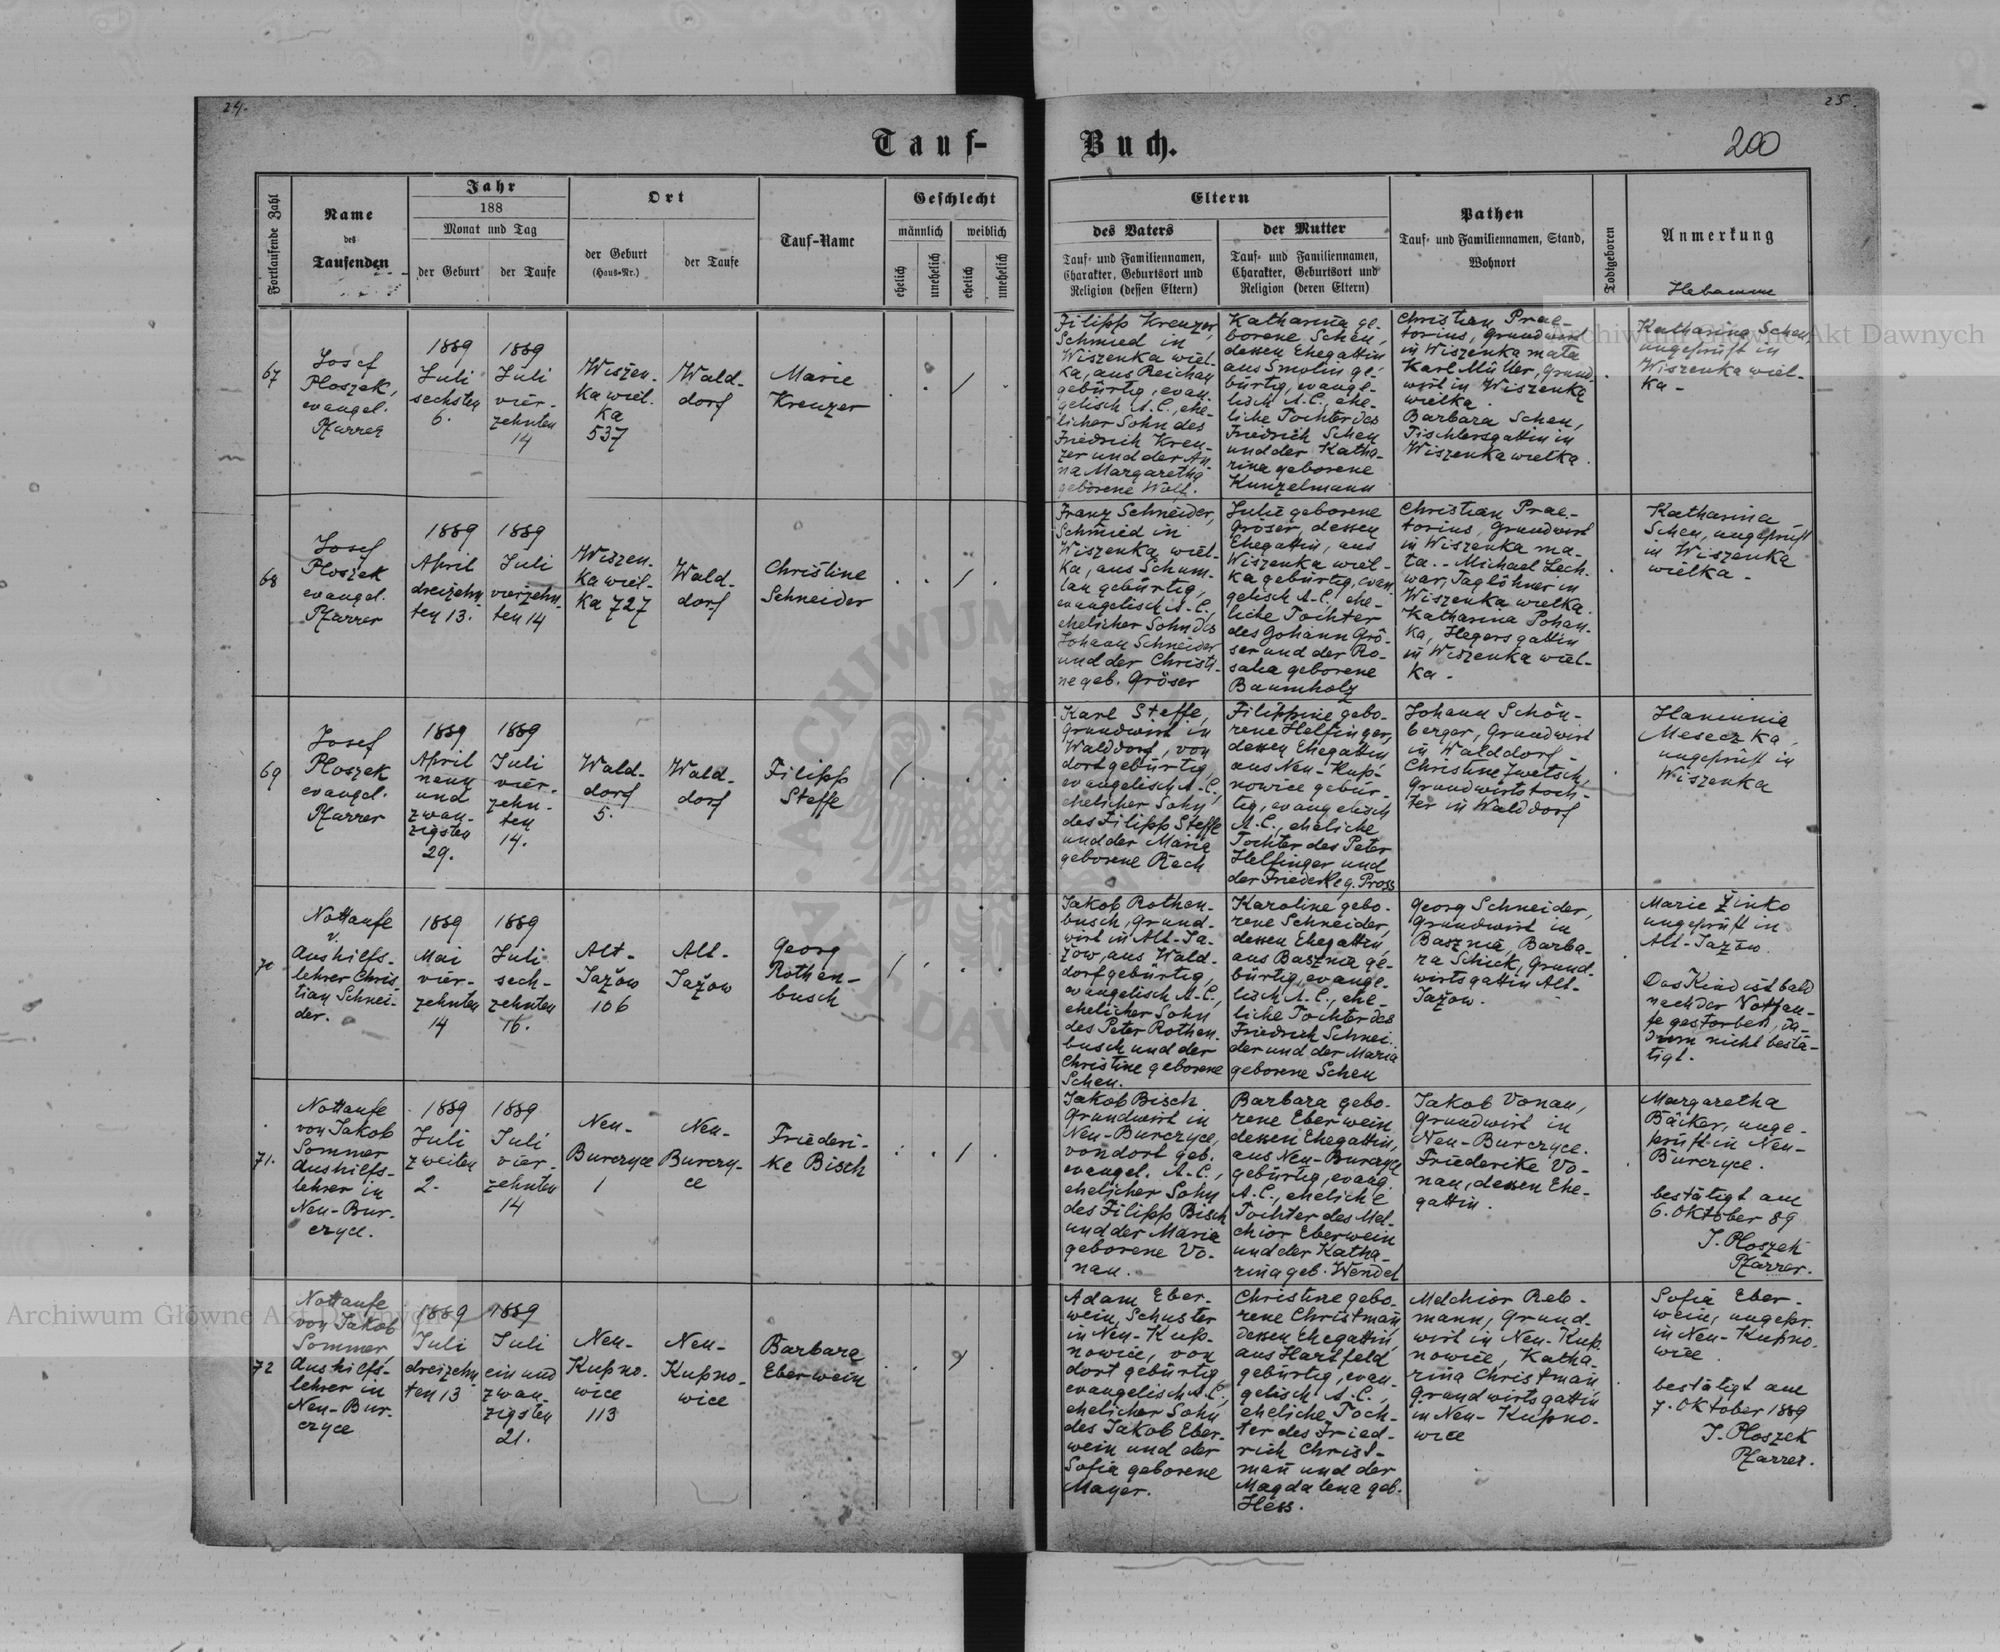 24.
25.
Tauf-
Buch.
200
Fortlaufende Zahl
Name
des
Taufenden
Jahr
188
Monat und Tag
der Geburt
der Taufe
Ort
der Geburt
(Haus-Nr.)
der Taufe
Tauf-Name
Geschlecht
männlich
weiblich
ehelich
unehelich
ehelich
unehelich
Eltern
des Vaters
Tauf- und Familiennamen,
Charakter, Geburtsort und
Religion (dessen Eltern)
der Mutter
Tauf- und Familiennamen,
Charakter, Geburtsort und
Religion (deren Eltern)
Pathen
Tauf- und Familiennamen, Stand,
Wohnort
Todtgeboren
Anmerkung
Hebamme
67
Josef
Ploszek,
evangel.
Pfarrer
1889
Juli
sechsten
6.
1889
Juli
vier-
zehnten
14
Wiszen-
ka wiel-
ka
537
Wald-
dorf
Marie
Kreuzer
Filipp Kreuzer,
Schmied in
Wiszenka wiel-
ka, aus Reichau
gebürtig, evan-
gelisch A.C., ehe-
licher Sohn des
Friedrich Kreu-
zer und der An-
na Margaretha
geborene Wolf.
Katharina ge-
borene Scheu,
dessen Ehegattin
aus Smolin ge-
bürtig, evange-
lisch A.C., ehe-
liche Tochter des
Friedrich Scheu
und der Katha-
rina geborene
Kunzelmann
Christian Prae-
torius, Grundwirt
in Wiszenka mała
Karl Müller, Grund-
wirt in Wiszenka
wielka.
Barbara Scheu,
Tischlersgattin in
Wiszenka wielka.
Katharina Scheu
ungeprüft in
Wiszenka wiel-
ka -
68
Josef
Ploszek
evangel.
Pfarrer
1889
April
dreizehn-
ten 13.
1889
Juli
vierzehn-
ten 14
Wiszen-
ka wiel-
ka 727
Wald-
dorf
Christine
Schneider
Franz Schneider,
Schmied in
Wiszenka wiel-
ka, aus Schum-
lau gebürtig,
evangelisch A.C.,
ehelicher Sohn des
Johann Schneider
und der Christi-
ne geb. Gröser
Julie geborene
Gröser, dessen
Ehegattin, aus
Wiszenka wiel-
ka gebürtig, evan-
gelisch A.C., ehe-
liche Tochter
des Johann Grö-
ser und der Ro-
salia geborene
Baumholz
Christian Prae-
torius, Grundwirt
in Wiszenka ma-
ła. - Michael Lech-
war, Taglöhner in
Wiszenka wielka.
Katharina Pohan-
ka, Hegersgattin
in Wiszenka wiel-
ka -
Katharina
Scheu, ungeprüft
in Wiszenka
wielka -
69
Josef
Ploszek
evangel.
Pfarrer
1889
April
neun
und
zwan-
zigsten
29.
1889
Juli
vier-
zehn-
ten
14.
Wald-
dorf
5.
Wald-
dorf
Filipp
Steffe
Karl Steffe,
Grundwirt in
Walddorf, von
dort gebürtig,
evangelisch A.C.,
ehelicher Sohn
des Filipp Steffe
und der Maria
geborene Rech
Filippine gebo-
rene Helfinger,
dessen Ehegattin
aus Neu-Kup-
nowice gebür-
tig, evangelisch
A.C., eheliche
Tochter des Peter
Helfinger und
der Friederike g. Pross
Johann Schön-
berger, Grundwirt
in Walddorf -
Christine Zwetsch,
Grundwirtstoch-
ter in Walddorf
Hanunia
Meseczka,
ungeprüft in
Wiszenka
70
Nottaufe
v.
Aushilfs-
lehrer Chris-
tian Schnei-
der.
1889
Mai
vier-
zehnten
14
1889
Juli
sech-
zehnten
16.
Alt-
Jażow
106
Alt-
Jażow
Georg
Rothen-
busch
Jakob Rothen-
busch, Grund-
wirt in Alt-Ja-
żow, aus Wald-
dorf gebürtig,
evangelisch A.C.,
ehelicher Sohn
des Peter Rothen-
busch und der
Christine geborene
Scheu.
Karoline gebo-
rene Schneider,
dessen Ehegattin,
aus Basznia ge-
bürtig, evange-
lisch A.C., ehe-
liche Tochter des
Friedrich Schnei-
der und der Maria
geborene Scheu
Georg Schneider,
Grundwirt in
Basznia, Barba-
ra Schick, Grund-
wirtsgattin Alt-
Jażow.
Marie Żinko
ungeprüft in
Alt-Jażow.
Das Kind ist bald
nach der Nottau-
fe gestorben, da-
rum nicht bestä-
tigt.
71.
Nottaufe
von Jakob
Sommer
Aushilfs-
lehrer in
Neu-Bur-
czyce.
1889
Juli
zweiten
2.
1889
Juli
vier-
zehnten
14
Neu-
Burczyce
1
Neu-
Burczy-
ce
Friederi-
ke Bisch
Jakob Bisch
Grundwirt in
Neu-Burczyce,
von dort geb.
evangel. A.C.,
ehelicher Sohn
des Filipp Bisch
und der Maria
geborene Vo-
nau.
Barbara gebo-
rene Eberwein,
dessen Ehegattin,
aus Neu-Burczyce
gebürtig, evang.
A.C., eheliche
Tochter des Mel-
chior Eberwein
und der Katha-
rina geb. Wendel
Jakob Vonau,
Grundwirt in
Neu-Burczyce.
Friederike Vo-
nau, dessen Ehe-
gattin.
Margaretha
Bäker, unge-
prüft in Neu-
Burczyce.
bestätigt am
6. Oktober 89
J. Ploszek
Pfarrer.
72
Nottaufe
von Jakob
Sommer,
Aushilfs-
lehrer in
Neu-Bur-
czyce
1889
Juli
dreizehn-
ten 13
1889
Juli
ein und
zwan-
zigsten
21.
Neu-
Kupno-
wice
113
Neu-
Kupno-
wice
Barbara
Eberwein
Adam Eber-
wein, Schuster
in Neu-Kup-
nowice, von
dort gebürtig,
evangelisch A.C.,
ehelicher Sohn
des Jakob Eber-
wein und der
Sofia geborene
Mayer.
Christine gebo-
rene Christman
dessen Ehegattin,
aus Hartfeld
gebürtig, evan-
gelisch A.C.,
eheliche Toch-
ter des Fried-
rich Christ-
man und der
Magdalena geb.
Hess.
Melchior Reb-
mann, Grund-
wirt in Neu-Kup-
nowice, Katha-
rina Christman
Grundwirtsgattin
in Neu-Kupno-
wice
Sofia Eber-
wein, ungepr.
in Neu-Kupno-
wice
bestätigt am
7. Oktober 1889
J. Ploszek
Pfarrer.
Archiwum Główne Akt Dawnych
Archiwum Główne Akt Dawnych